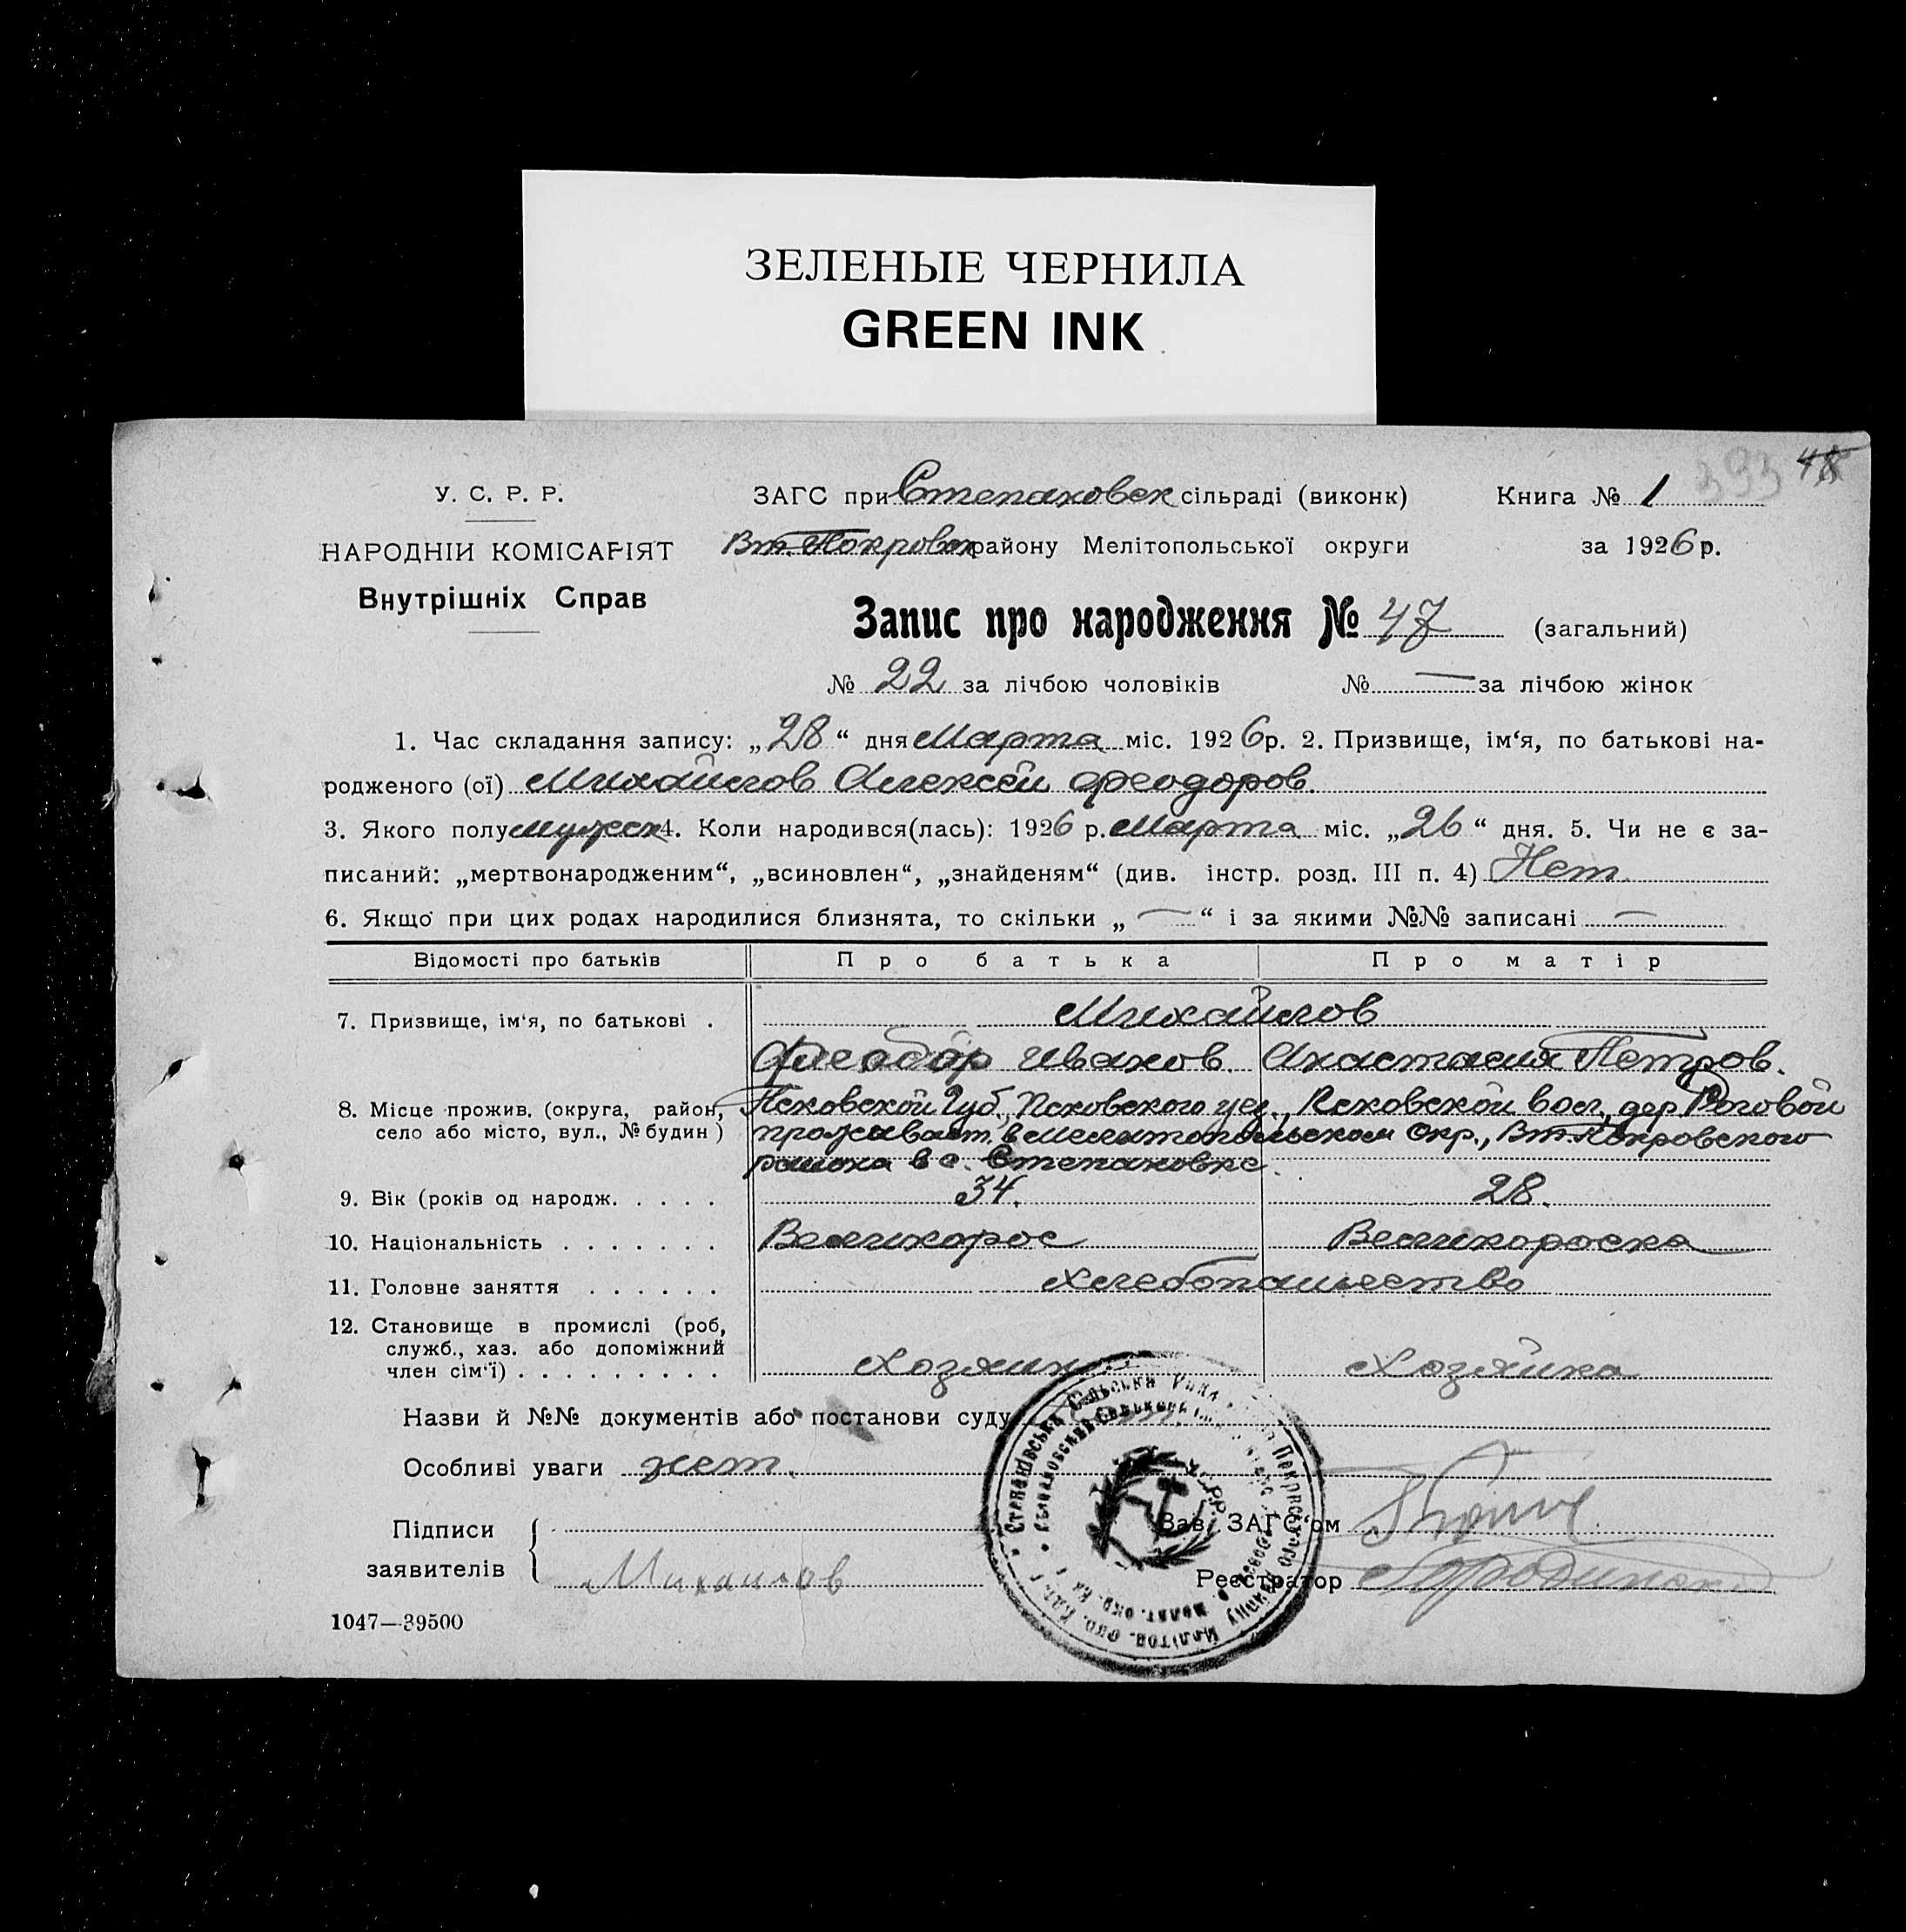 ЗЕЛЕНЫЕ ЧЕРНИЛА
GREEN INK
393 48
У. С. Р. Р.
НАРОДНІЙ КОМІСАРІЯТ
Внутрішніх Справ
ЗАГС при Степановск сільраді (виконк)
Вт. Покровск району Мелітопольської округи
Книга № 1
за 1926 р.
Запис про народження № 47 (загальний)
№ 22 за лічбою чоловіків № — за лічбою жінок
1. Час складання запису: „28“ дня Марта міс. 1926 р. 2. Призвище, ім‘я, по батькові на-
родженого (ої) Михайлов Алексей Феодоров.
3. Якого полу мужск 4. Коли народився(лась): 1926 р. Марта міс. „26“ дня. 5. Чи не є за-
писаний: „мертвонародженим“, „всиновлен“, „знайденям“ (див. інстр. розд. III п. 4) Нет
6. Якщо при цих родах народилися близнята, то скільки „—“ і за якими №№ записані —
Відомості про батьків Про батька Про матір
7. Призвище, ім‘я, по батькові . Михайлов
Феодор Иванов. Анастасия Петров.
8. Місце прожив. (округа, район, село або місто, вул., № будин) Псковской Губ., Псковского уез., Псковской вол., дер. Роговой
проживает. в Мелитопольском Окр., Вт. Покровского
района в с. Степановке.
9. Вік (років од народж. . . . . 34. 28.
10. Національність . . . . . . . Великорос Великороска
11. Головне заняття . . . . . . Хлебопашество
12. Становище в промислі (роб,
служб., хаз. або допоміжний
член сім‘ї) . . . . . . . . . Хозяин Хозяйка
Назви й №№ документів або постанови суду
Особливі уваги нет.
Підписи
заявителів Михайлов
Зав. ЗАГС‘ом
Реєстратор
1047—39500